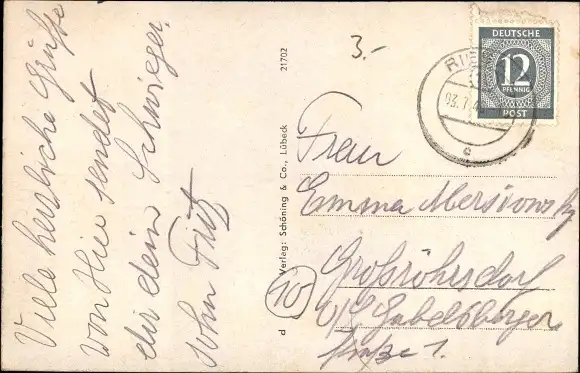 Viele herzliche Grüsse
von Hier sendet
dir dein Schwieger
sohn Fritz
21702
Verlag: Schöning & Co., Lübeck
d
10
3.-
DEUTSCHE
12
PFENNIG
POST
03.7.
c
Frau
Emma
Grossröhrsdorf
Gabelsberger
straße 1.